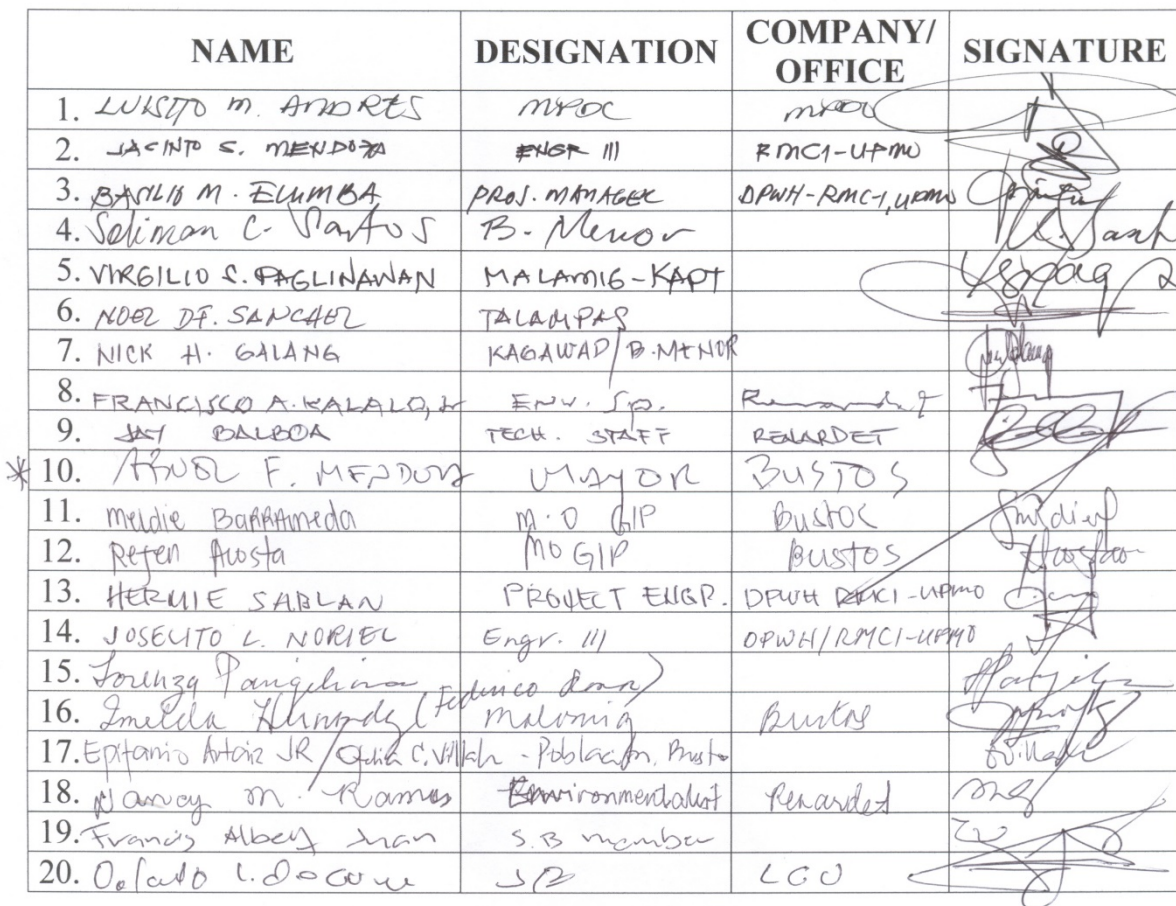 NAME DESIGNATION COMPANY/ OFFICE SIGNATURE
1. LUISITO M. ANDRES MPDC MPDO
2. JACINTO S. MENDOZA ENGR III RMC1-UPMO
3. BASILIO M. ELUMBA PROJ. MANAGER DPWH-RMC-1, UPMO
4. Soliman C. Santos B. Menor
5. VIRGILIO S. PAGLINAWAN MALAMIG-KAPT
6. NOEL DF. SANCHEZ TALAMPAS
7. NICK H. GALANG KAGAWAD/B.MENOR
8. FRANCISCO A. KALALO, Jr Env. Sp.
9. JAY BALBOA TECH. STAFF RENARDET
* 10. ARNEL F. MENDOZA MAYOR BUSTOS
11. Meldie BARRAmeda M.O GIP Bustos
12. Regen Acosta MO GIP BUSTOS
13. HERMIE SABLAN PROJECT ENGR. DPWH RMC1-UPMO
14. JOSELITO L. NORIEL Engr. III DPWH/RMC1-UPMO
15. Lorenza
16. Imelda Malamig Bustos
17. Epifanio JR / C. - Poblacion, Busto
18. Nancy M. Ramos Environmentalist Renardet
19. Francis Albert Juan S.B member
20. LGU